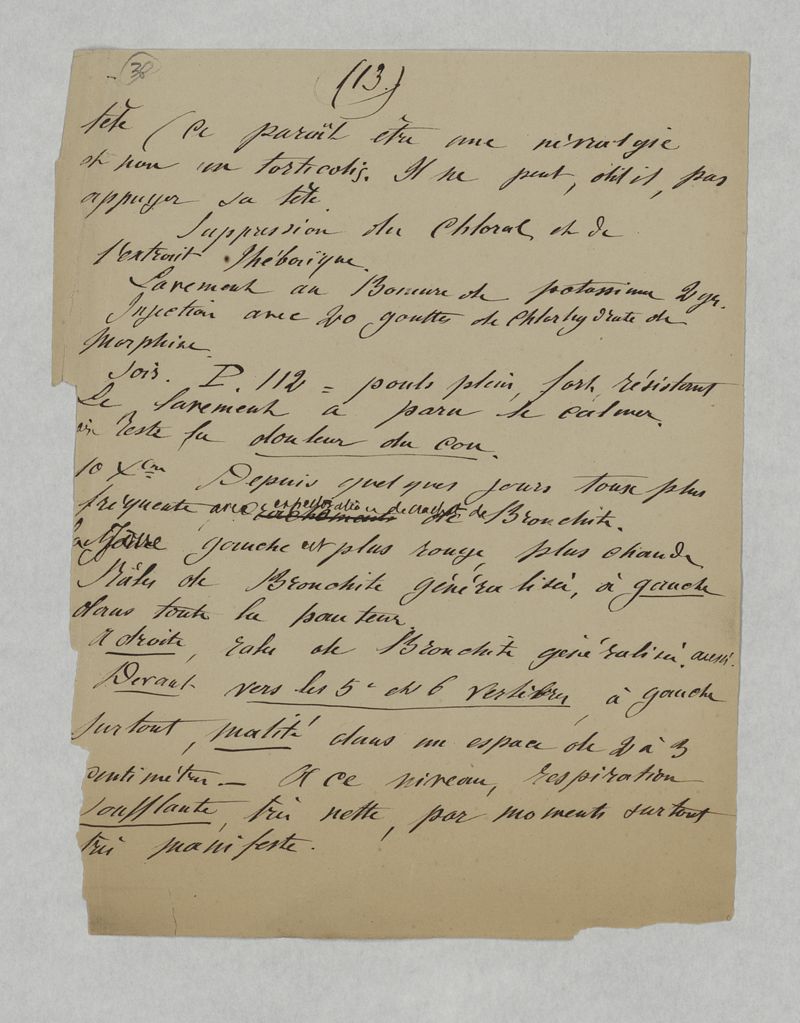 38
(13)
tête (Ce paraît être une névralgie
et non un torticolis. Il ne peut, dit il, pas
appuyer sa tête.
Suppression du Chloral et de
l'extrait Thébaïque.
Lavement au Bromure de potassium 2 gr.
Injection avec 20 gouttes de Chlorhydrate de
Morphine.
Soir. P. 112 = pouls plein, fort, résistant
Le lavement a paru le calmer.
Reste la douleur du cou.
10 Xbre Depuis quelques jours toux plus
fréquente avec expectoration de crachats de Bronchite.
la Joue gauche est plus rouge, plus chaude
Râles de Bronchite généralisée, à gauche
dans toute la hauteur.
A droite, rales de Bronchite généralisée aussi.
Devant vers les 5e et 6 vertèbres, à gauche
surtout, matité dans un espace de 2 à 3
centimètres — A ce niveau, respiration
soufflante, très nette, par moments surtout
très manifeste.